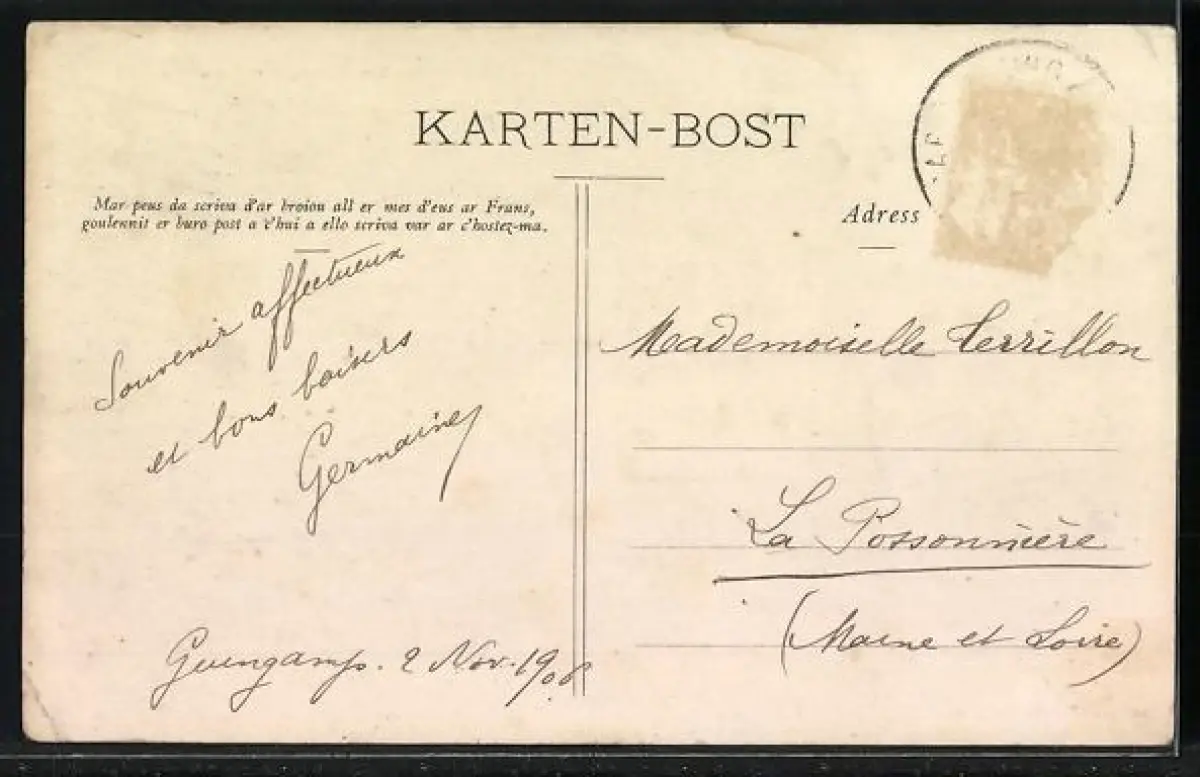 KARTEN-BOST
Mar peus da scriva d'ar broiou all er mes d'eus ar Frans,
goulennit er buro post a c'hui a ello scriva var ar c'hostez-ma.
Adress
Souvenir affectueux
et bons baisers
Germaine
Guingamp. 2 Nov. 1908
Mademoiselle Terrillon
La Possonnière
(Maine et Loire)